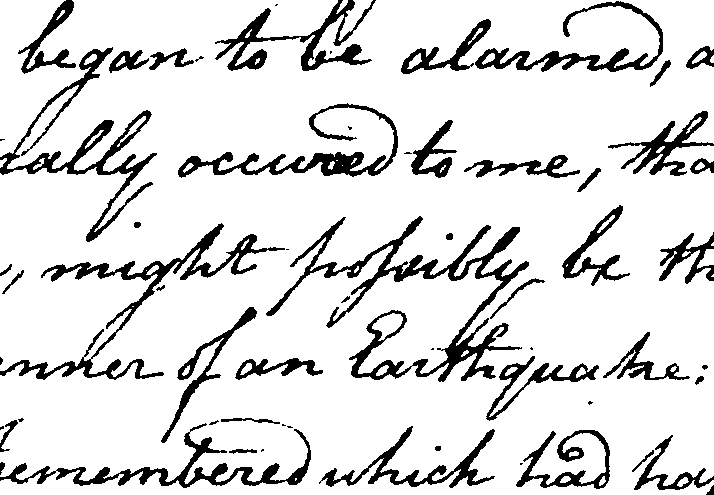 began to be alarmed, a
nally occured to me, tha
, might possibly be th
nner of an Earthquake:
remembered which had ha